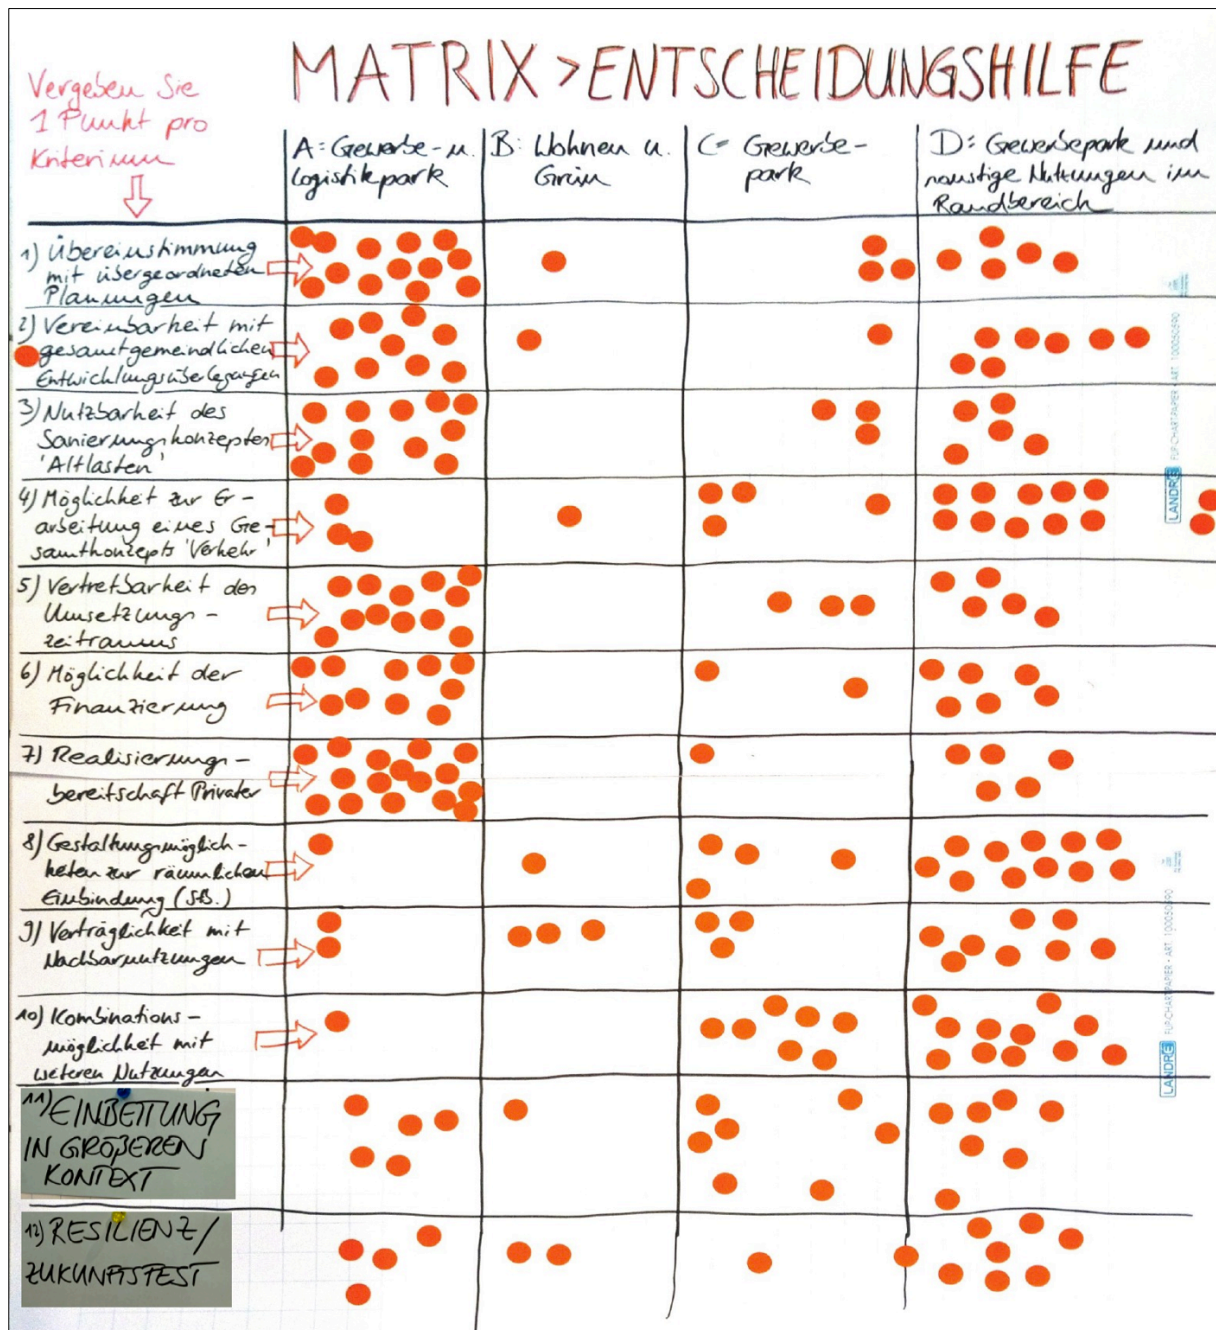 MATRIX > ENTSCHEIDUNGSHILFE
Vergeben Sie
1 Punkt pro
Kriterium
A = Gewerbe- u.
Logistikpark
B: Wohnen u.
Grün
C= Gewerbe-
park
D: Gewerbepark und
sonstige Nutzungen im
Randbereich
1) Übereinstimmung
mit übergeordneten
Planungen
2) Vereinbarkeit mit
gesamtgemeindlichen
Entwicklungsüberlegungen
3) Nutzbarkeit des
Sanierungskonzeptes
'Altlasten'
4) Möglichkeit zur Er-
arbeitung eines Ge-
samtkonzepts 'Verkehr'
5) Vertretbarkeit des
Umsetzungs-
zeitraums
6) Möglichkeit der
Finanzierung
7) Realisierungs-
bereitschaft Privater
8) Gestaltungsmöglich-
keiten zur räumlichen
Einbindung (StB.)
9) Verträglichkeit mit
Nachbarnutzungen
10) Kombinations-
möglichkeit mit
weiteren Nutzungen
11) EINBETTUNG
IN GRÖßEREN
KONTEXT
12) RESILIENZ/
ZUKUNFTSFEST
LANDRÉ FLIP-CHARTPAPIER · ART. 100050590
LANDRÉ FLIP-CHARTPAPIER · ART. 100050590